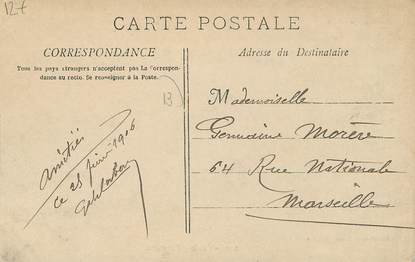 127
CARTE POSTALE
CORRESPONDANCE
Tous les pays étrangers n'acceptent pas La Correspon-
dance au recto. Se renseigner à la Poste.
13
Amitiés
ce 25 juin 1906
Adresse du Destinataire
Mademoiselle
Germaine Morère
64 Rue Nationale
Marseille